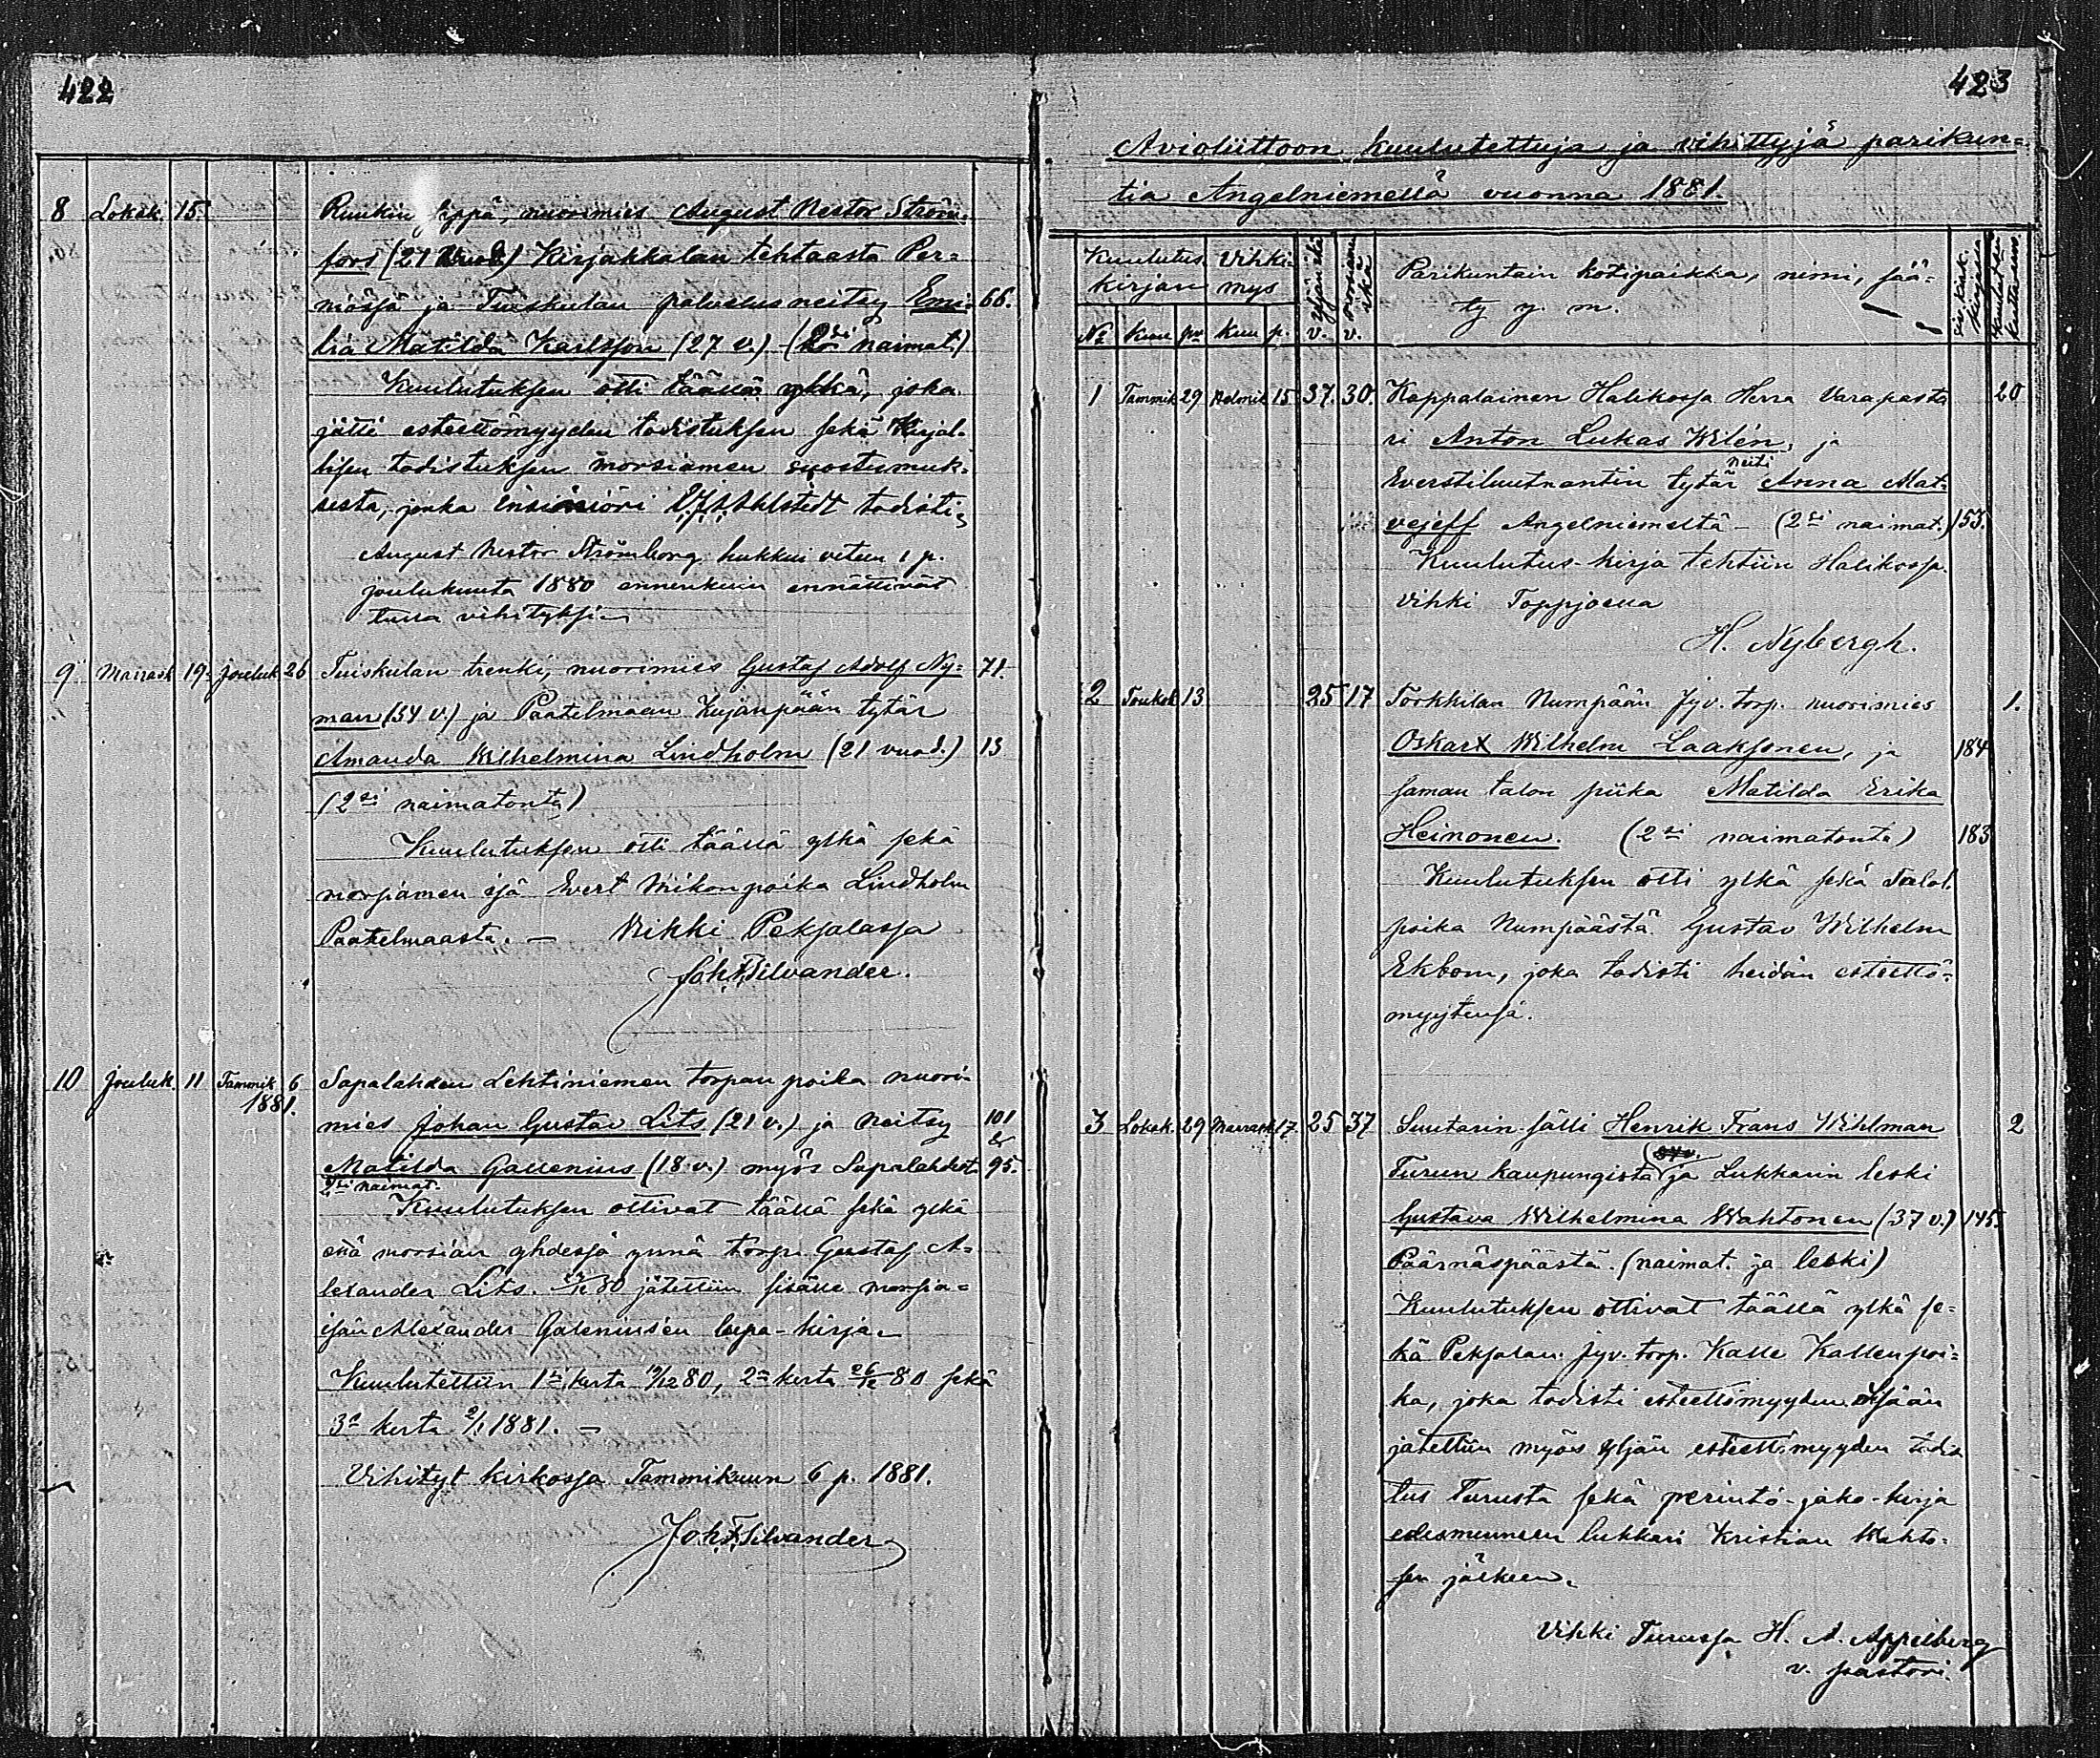 422
8 Lokak. 15. Ruukin seppä, nuorimies August Nestor Ström-
fors (21 vuod.) Kirjakkalan tehtaasta Per-
niössä ja Tuiskulan palvelusneitsy Emi- 66.
lia Matilda Karlsson (27 v.) - (2si naimat.)
Kuulutuksen otti täällä ylkä, joka
jätti esteettömyyden todistuksen sekä Kirjal-
lisen todistuksen morsiamen suostumuk-
sesta, jonka Ensiniööri Ahlstedt todisti
August Nestor Strömborg hukkui veteen 1 p.
joulukuuta 1880 ennenkuin ennättivät
tulla vihityksi
9 Marrask. 19. Jouluk. 26 Tuiskulan trenki, nuorimies Gustaf Adolf Ny- 71.
man (34 v.) ja Paatelmaan Kujanpään tytär
Amanda Wilhelmina Lindholm (21 vuod.) 13
(2si naimatonta)
Kuulutuksen otti täällä ylkä sekä
morsiamen isä Evert Mikonpoika Lindholm
Paatelmaasta. — Vihki Peksalassa
Joh. F. Silvander.
10 Jouluk. 11 Tammik. 6 Sapalahden Lehtiniemen torpan poika nuori-
1881. mies Johan Gustav Lits (21 v.) ja neitsy 101
&
Matilda Gallenius (18 v.) myös Sapalahdest. 95.
2si naimat.
Kuulutuksen ottivat täällä sekä ylkä
että morsian yhdessä ynnä torp. Gustaf A-
lexander Lits. 80 jätettiin sisälle morsia-
isän Alexander Galenius'en lupa-kirja
Kuulutettiin 1si kerta 19/12 80, 2n kerta 26/12 80 sekä
3s kerta 2/1 1881. —
Vihityt kirkossa Tammikuun 6 p. 1881.
Joh. F. Silvander
423
Avioliittoon kuulutettuja ja vihittyjä parikun-
tia Angelniemellä vuonna 1881.
Kuulutus kirjan Vihki- mys yljän ikä morsiamen ikä Parikuntain kotipaikka, nimi, sää-
ty y. m.
No Kuu pv Kuu p. v. v.
1 Tammik 29 Helmik 15 37. 30. Kappalainen Halikossa Herra Varapasto- 20
ri Anton Lukas Wilén, ja
Everstiluutnantin tytär neiti Anna Mat-
vejeff Angelniemeltä — (2si naimat.) 153.
Kuulutus-kirja tehtiin Halikossa.
Vihki Toppjoella
H. Nybergh.
2 Toukok 13 25 17 Torkkilan Numpään Jyv. torp. nuorimies 1.
Oskar Wilhelm Laaksonen, ja 184
saman talon piika Matilda Erika
Heinonen. (2si naimatonta) 183
Kuulutuksen otti ylkä sekä talol.
poika Numpäästä Gustav Wilhelm
Ekbom, joka todisti heidän esteettö-
myytensä.
3 Lokak. 29 Marrask 17 25 37 Suutarin sälli Henrik Frans Wihlman 2
Turun kaupungista ja Lukkarin leski
Gustava Wilhelmina Wahtonen (37 v.) 145.
Päärnäspäästä. (naimat. ja leski)
Kuulutuksen ottivat täällä ylkä se-
kä Peksalan Jyv. torp. Kalle Kallenpoi-
ka, joka todisti esteettömyyden. Sisään
jätettiin myös yljän esteettömyyden todis
tus Turusta sekä perintö-jako-kirja
edesmenneen lukkari Kristian Wahto-
sen jälkeen.
Vihki Turussa H. A. Appelberg
v. pastori.